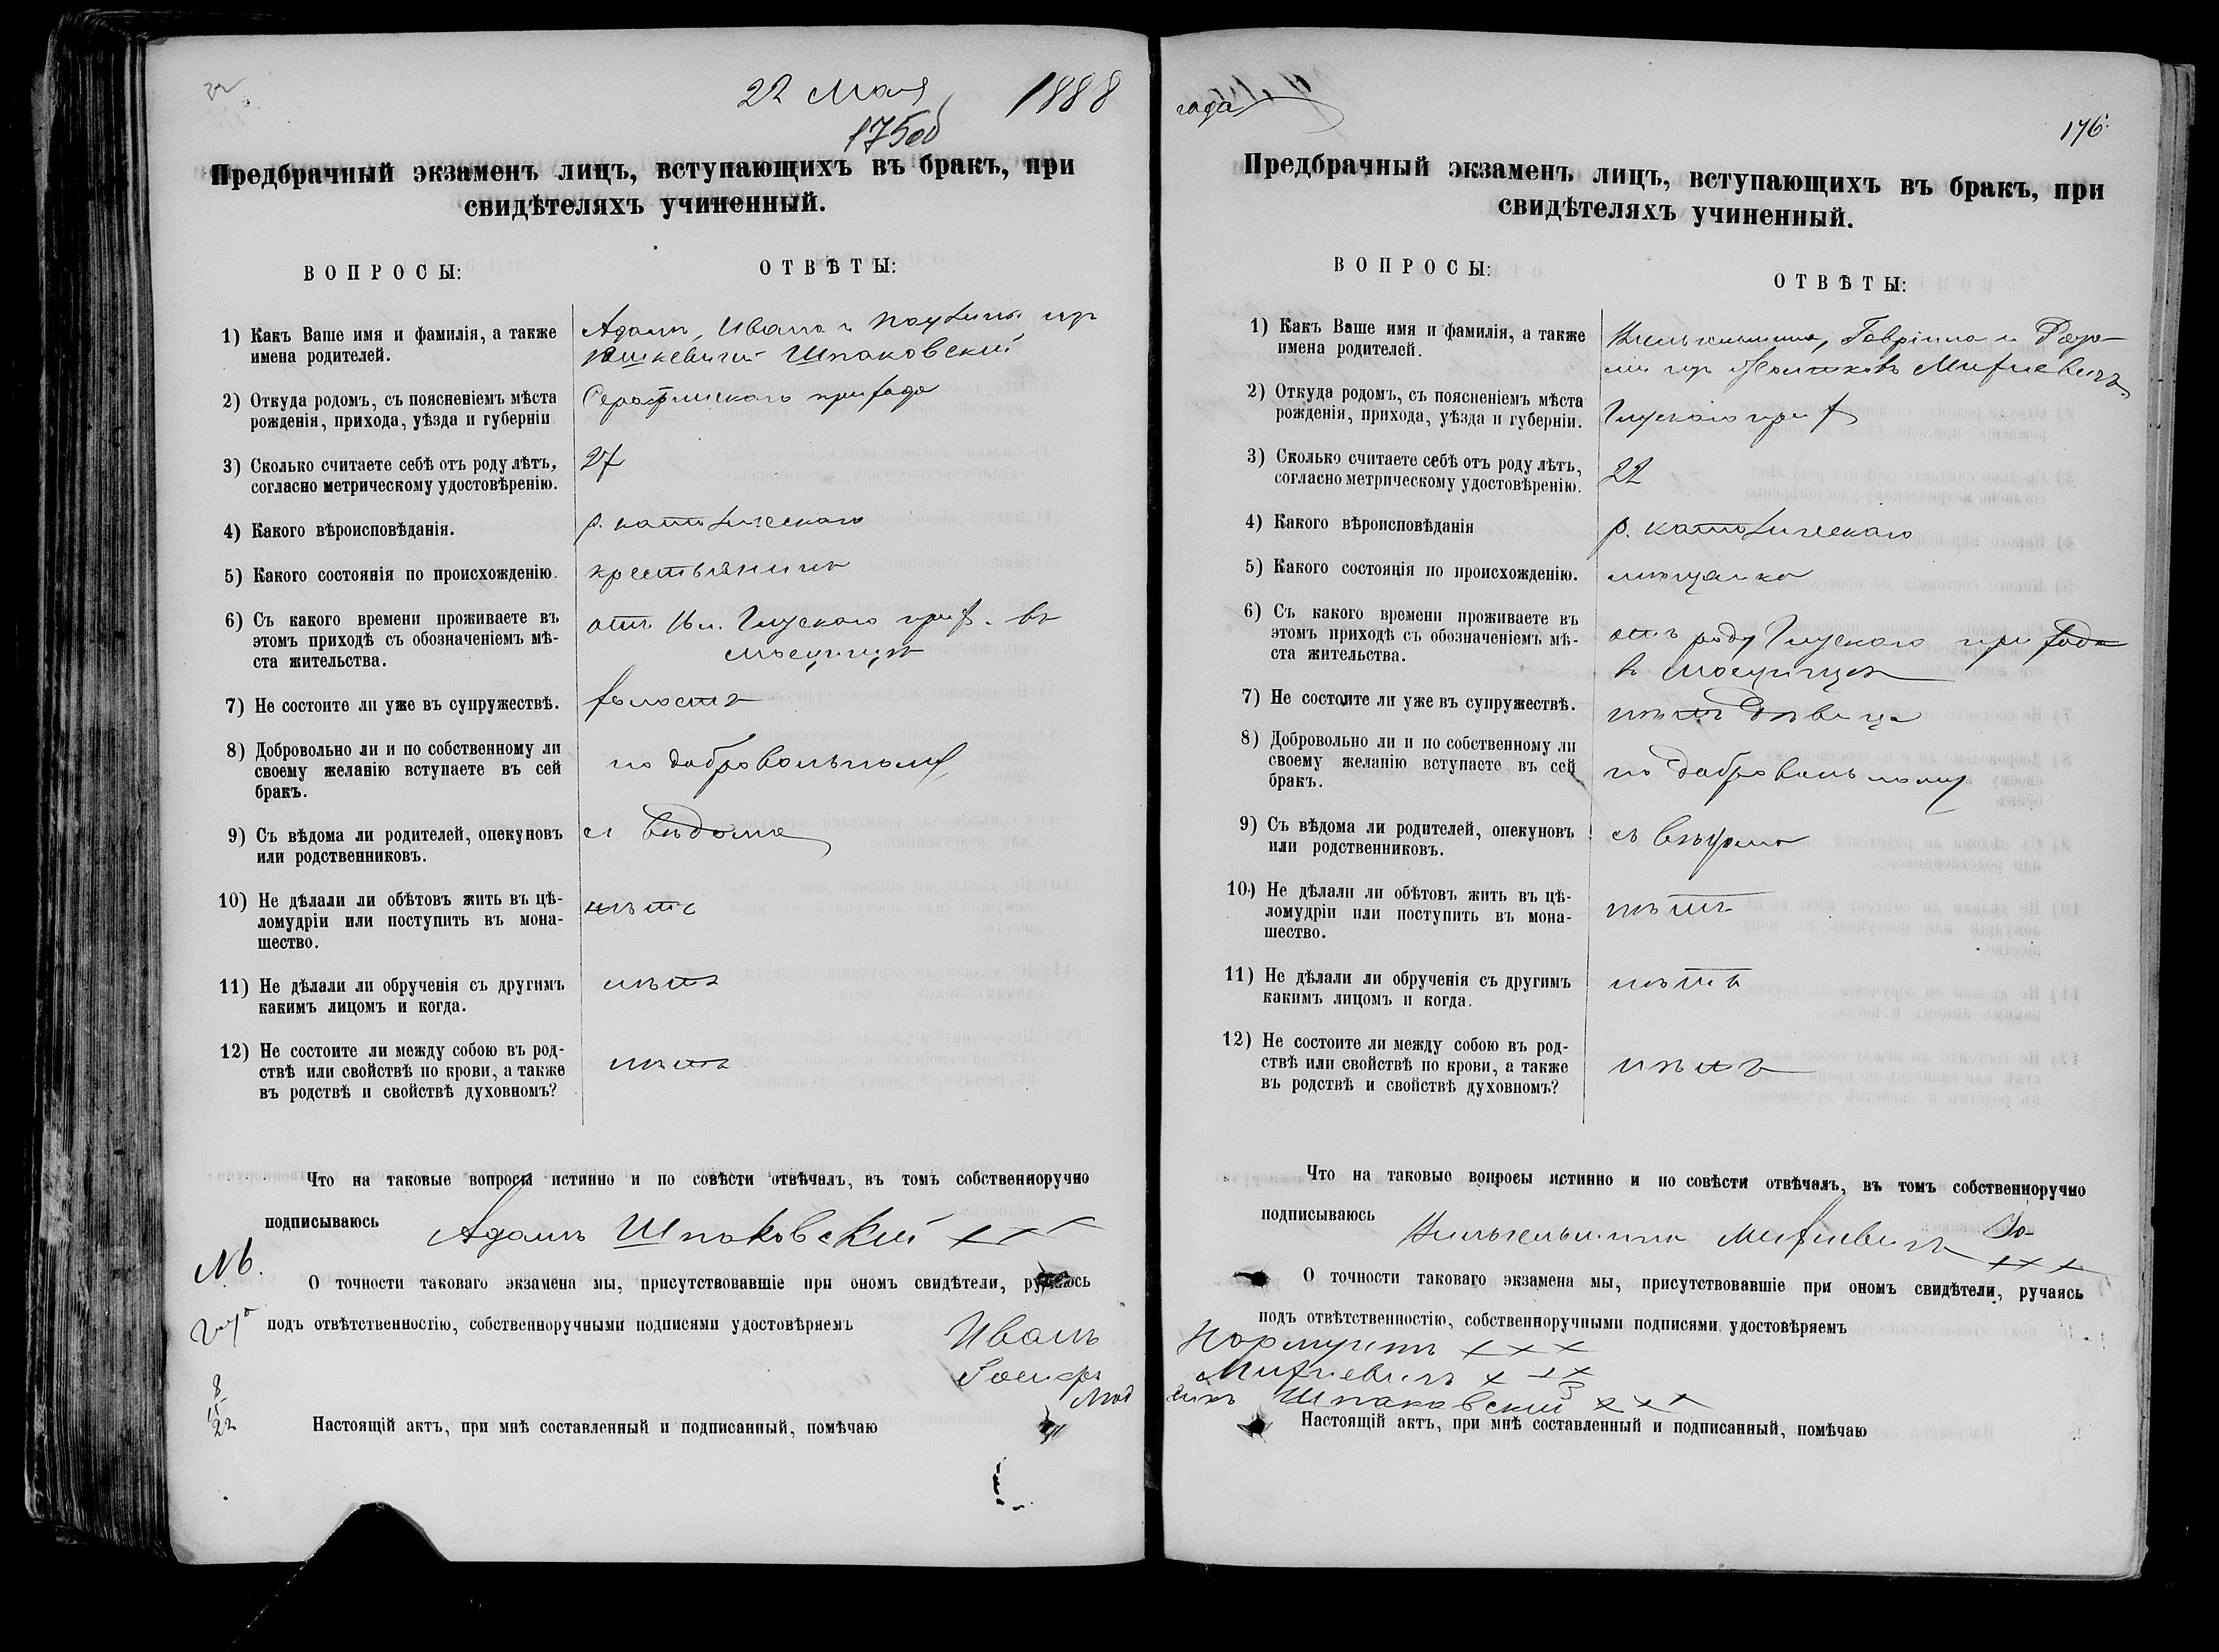 22 Мая 1888 года
175об
176
Предбрачный экзаменъ лицъ, вступающихъ въ бракъ, при
свидѣтеляхъ учиненный.
ВОПРОСЫ:
ОТВѢТЫ:
1) Какъ Ваше имя и фамилія, а также
имена родителей.
Адамъ, Ивана и Паулины изъ
Юшкевичей Шпаковскій
2) Откуда родомъ, съ поясненіемъ мѣста
рожденія, прихода, уѣзда и губерніи
Серафинскаго прихода
3) Сколько считаете себѣ отъ роду лѣтъ,
согласно метрическому удостовѣренію.
27
4) Какого вѣроисповѣданія.
р. католическаго
5) Какого состоянія по происхожденію.
крестьянинъ
6) Съ какого времени проживаете въ
этомъ приходѣ съ обозначеніемъ мѣ-
ста жительства.
отъ 16 л. Глускаго прих. въ
7) Не состоите ли уже въ супружествѣ.
холостъ
8) Добровольно ли и по собственному ли
своему желанію вступаете въ сей
бракъ.
по добровольному
9) Съ вѣдома ли родителей, опекуновъ
или родственниковъ.
съ вѣдома
10) Не дѣлали ли обѣтовъ жить въ цѣ-
ломудріи или поступить въ мона-
шество.
нѣтъ
11) Не дѣлали ли обрученія съ другимъ
какимъ лицомъ и когда.
нѣтъ
12) Не состоите ли между собою въ род-
ствѣ или свойствѣ по крови, а также
въ родствѣ и свойствѣ духовномъ?
нѣтъ
Что на таковые вопросы истинно и по совѣсти отвѣчалъ, въ томъ собственноручно
подписываюсь
Адамъ Шпаковскій +++
О точности таковаго экзамена мы, присутствовавшіе при ономъ свидѣтели, ручаюсь
подъ отвѣтственностію, собственноручными подписями удостовѣряемъ
Иванъ
Іосифъ
8
15
22
Настоящій актъ, при мнѣ составленный и подписанный, помѣчаю
Предбрачный экзаменъ лицъ, вступающихъ въ бракъ, при
свидѣтеляхъ учиненный.
ВОПРОСЫ:
ОТВѢТЫ:
1) Какъ Ваше имя и фамилія, а также
имена родителей.
Вильгельмина, Гавріила и
Михневичъ
2) Откуда родомъ, съ поясненіемъ мѣста
рожденія, прихода, уѣзда и губерніи.
Глускаго прих
3) Сколько считаете себѣ отъ роду лѣтъ,
согласно метрическому удостовѣренію.
22
4) Какого вѣроисповѣданія
р. католическаго
5) Какого состоянія по происхожденію.
мѣщанка
6) Съ какого времени проживаете въ
этомъ приходѣ съ обозначеніемъ мѣ-
ста жительства.
отъ роду Глускаго прихода
7) Не состоите ли уже въ супружествѣ.
нѣтъ дѣвица
8) Добровольно ли и по собственному ли
своему желанію вступаете въ сей
бракъ.
по добровольному
9) Съ вѣдома ли родителей, опекуновъ
или родственниковъ.
съ вѣдома
10) Не дѣлали ли обѣтовъ жить въ цѣ-
ломудріи или поступить въ мона-
шество.
нѣтъ
11) Не дѣлали ли обрученія съ другимъ
какимъ лицомъ и когда.
нѣтъ
12) Не состоите ли между собою въ род-
ствѣ или свойствѣ по крови, а также
въ родствѣ и свойствѣ духовномъ?
нѣтъ
Что на таковые вопросы истинно и по совѣсти отвѣчалъ, въ томъ собственноручно
подписываюсь
Вильгельмина Михневичъ
+++
О точности таковаго экзамена мы, присутствовавшіе при ономъ свидѣтели, ручаясь
подъ отвѣтственностію, собственноручными подписями удостовѣряемъ
+++
Михневичъ +++
Шпаковскій +++
Настоящій актъ, при мнѣ составленный и подписанный, помѣчаю